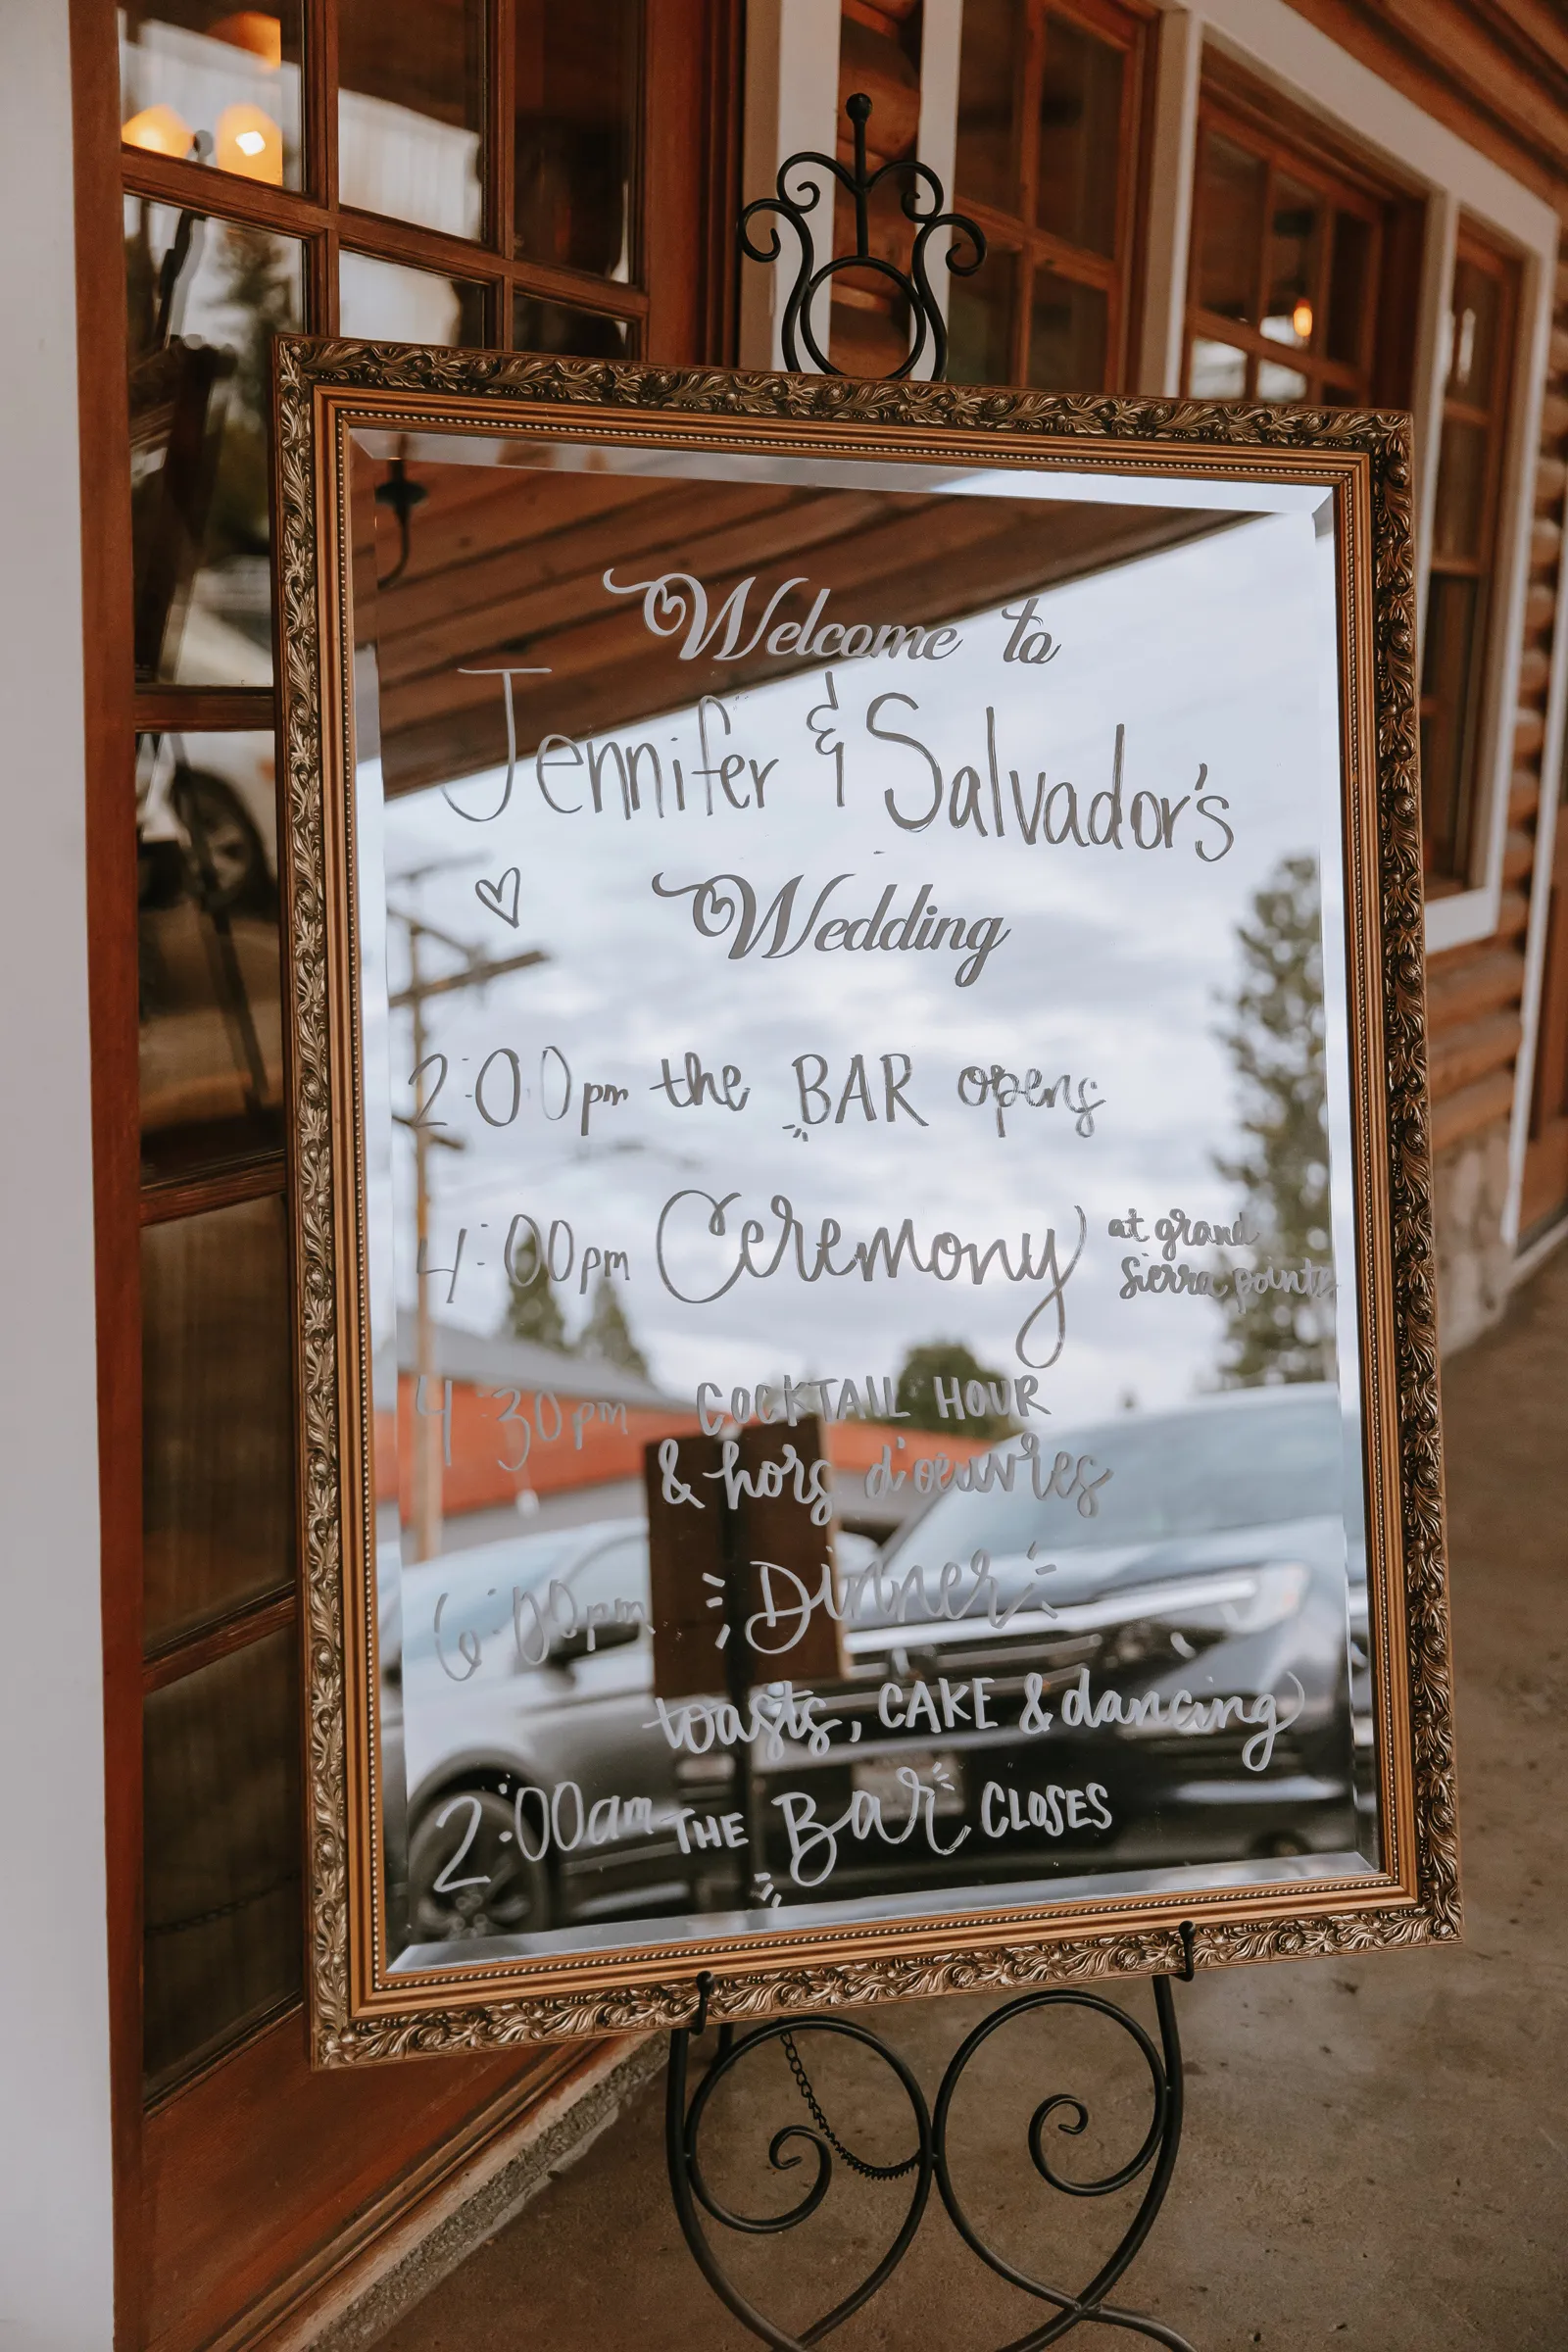 Welcome to
Jennifer & Salvador's
Wedding
2:00pm the BAR opens
4:00pm Ceremony at grand
Sierra pointe
4:30pm COCKTAIL HOUR
& hors d'oeuvres
6:00pm Dinner
toasts, CAKE & dancing
2:00am THE Bar CLOSES